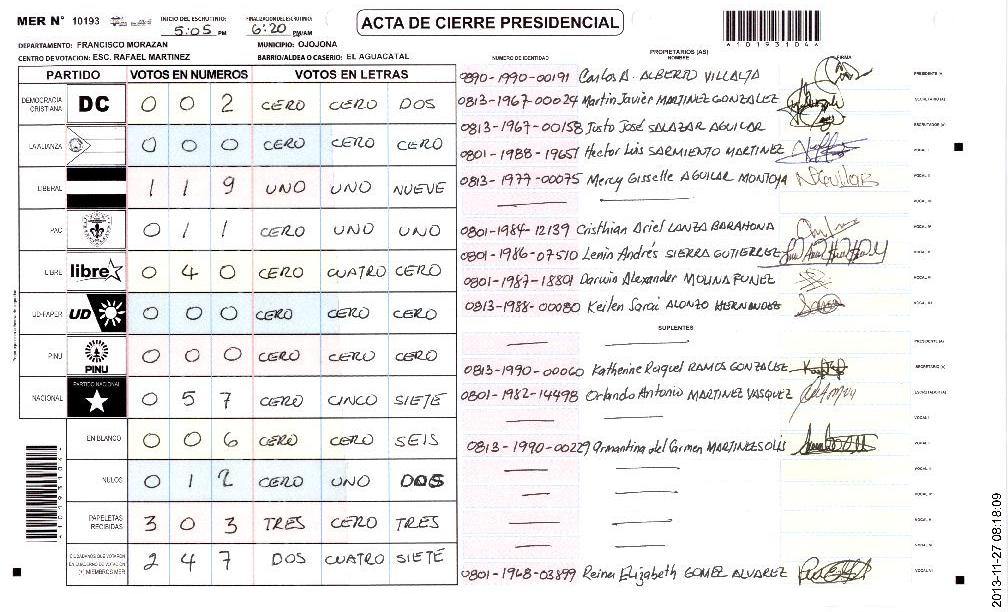 MER N° 10193 INICIO DEL ESCRUTINIO: 5:05 PM FINALIZACION DEL ESCRUTINIO: 6:20 PM/AM
ACTA DE CIERRE PRESIDENCIAL
A101931044
DEPARTAMENTO: FRANCISCO MORAZAN MUNICIPIO: OJOJONA
CENTRO DE VOTACION: ESC. RAFAEL MARTINEZ BARRIO/ALDEA O CASERIO: EL AGUACATAL
PARTIDO VOTOS EN NUMEROS VOTOS EN LETRAS
DEMOCRACIA CRISTIANA DC 0 0 2 CERO CERO DOS
LA ALIANZA 0 0 0 CERO CERO CERO
LIBERAL 1 1 9 UNO UNO NUEVE
PAC 0 1 1 CERO UNO UNO
LIBRE libre 0 4 0 CERO CUATRO CERO
UD-FAPER UD 0 0 0 CERO CERO CERO
PINU PINU 0 0 0 CERO CERO CERO
NACIONAL PARTIDO NACIONAL 0 5 7 CERO CINCO SIETE
EN BLANCO 0 0 6 CERO CERO SEIS
NULOS 0 1 2 CERO UNO DOS
PAPELETAS RECIBIDAS 3 0 3 TRES CERO TRES
CIUDADANOS QUE VOTARON EN CUADERNO DE VOTACION (+) MIEMBROS MER 2 4 7 DOS CUATRO SIETE
NUMERO DE IDENTIDAD PROPIETARIOS (AS) NOMBRE FIRMA
0890-1990-00191 Carlos A. ALBERTO VILLALTA PRESIDENTE (A)
0813-1967-00024 Martin Javier MARTINEZ GONZALEZ SECRETARIO (A)
0813-1967-00158 Justo José SALAZAR AGUILAR ESCRUTADOR (A)
0801-1988-19657 Hector Luis SARMIENTO MARTINEZ VOCAL I
0813-1977-00075 Mercy Gisselle AGUILAR MONTOYA VOCAL II
VOCAL III
0801-1984-12139 Cristhian Ariel LANZA BARAHONA VOCAL IV
0801-1986-07510 Lenin Andrés SIERRA GUTIERREZ VOCAL V
0801-1987-18801 Darwin Alexander MOLINA FUNEZ
0813-1988-00080 Keilen Sarai ALONZO HERNANDEZ
SUPLENTES
PRESIDENTE (A)
0813-1990-00060 Katherine Raquel RAMOS GONZALEZ SECRETARIO (A)
0801-1982-14498 Orlando Antonio MARTINEZ VASQUEZ ESCRUTADOR (A)
VOCAL I
0813-1990-00229 Armantina del Carmen MARTINEZ SOLIS
VOCAL V
0801-1968-03899 Reina Elizabeth GOMEZ ALVAREZ
2013-11-27 08:18:09